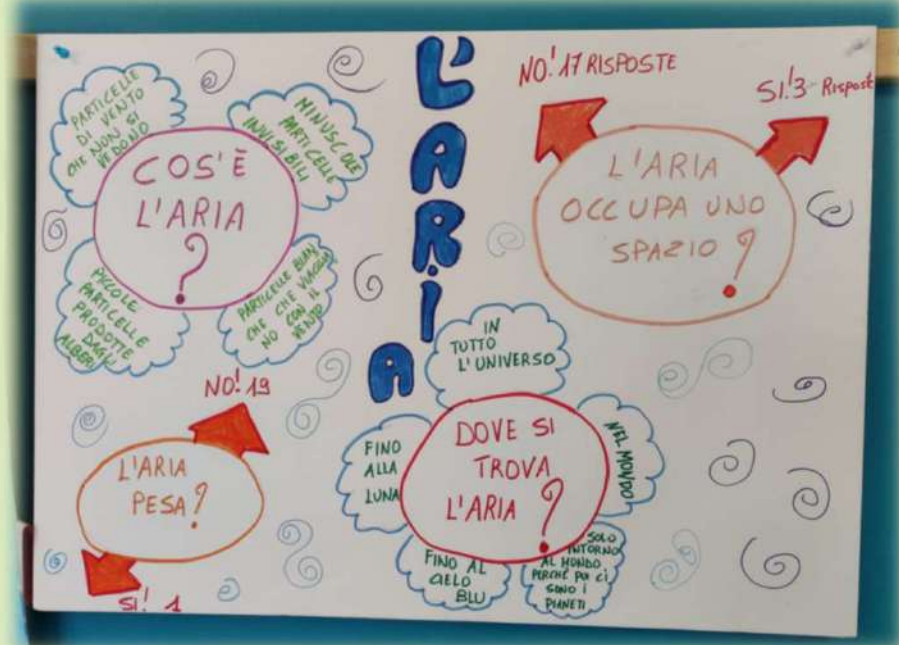 L'ARIA
COS'È
L'ARIA
?
PARTICELLE
DI VENTO
CHE NON SI
VEDONO
MINUSCOLE
PARTICELLE
INVISIBILI
PICCOLE
PARTICELLE
PRODOTTE
DAGLI
ALBERI
PARTICELLE BIAN
CHE CHE VIAGGIA
NO CON IL
VENTO
NO! 17 RISPOSTE
SI! 3 Risposte
L'ARIA
OCCUPA UNO
SPAZIO?
NO! 19
L'ARIA
PESA?
SI! 1
IN
TUTTO
L'UNIVERSO
DOVE SI
TROVA
L'ARIA?
FINO
ALLA
LUNA
NEL MONDO
FINO AL
CIELO
BLU
SOLO
INTORNO
AL MONDO
PERCHÉ POI CI
SONO I
PIANETI